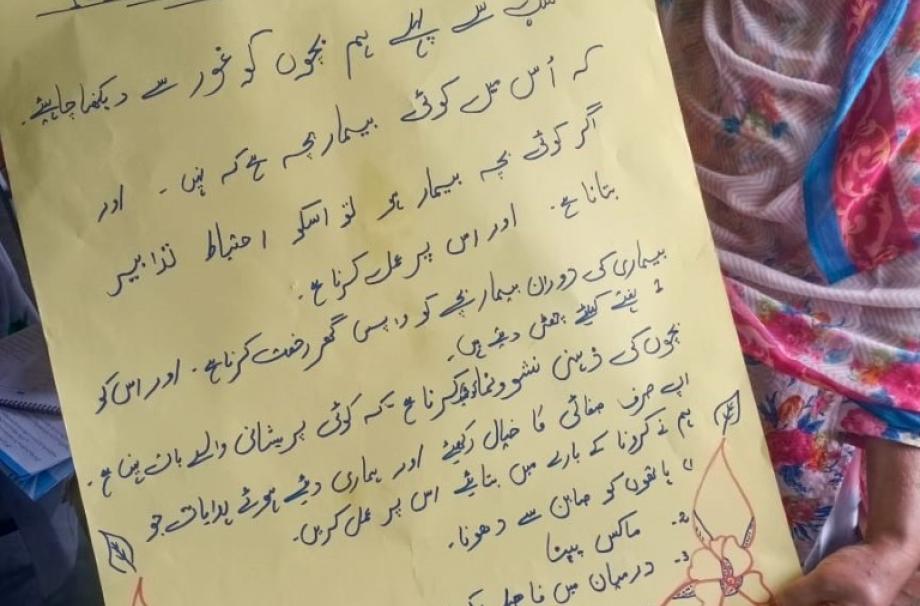 سے پہلے ہم بچوں کو غور سے دیکھنا چاہیئے۔
کہ اُس میں کوئی بیمار بچہ ہے کہ نہیں۔ اور
اگر کوئی بچہ بیمار ہو تو اسکو احتیاط تدابیر
بتانا ہے۔ اور اس پر عمل کرنا ہے۔
بیماری کی دوران بیمار بچے کو واپس گھر رخصت کرنا ہے۔ اور اس کو
1 ہفتے کیلئے چھٹی دیتے ہیں۔
بچوں کی ذہنی نشوونما کرنا ہے کہ کوئی پریشانی والے بات نہیں ہے۔
اپ صرف صفائی کا خیال رکھیئے اور ہماری دیئے ہوئے ہدایات جو
ہم نے کرونا کے بارے میں بتائیے اس پر عمل کریں۔
1) ہاتھوں کو صابن سے دھونا۔
2۔ ماکس پہننا
3۔ درمیان میں